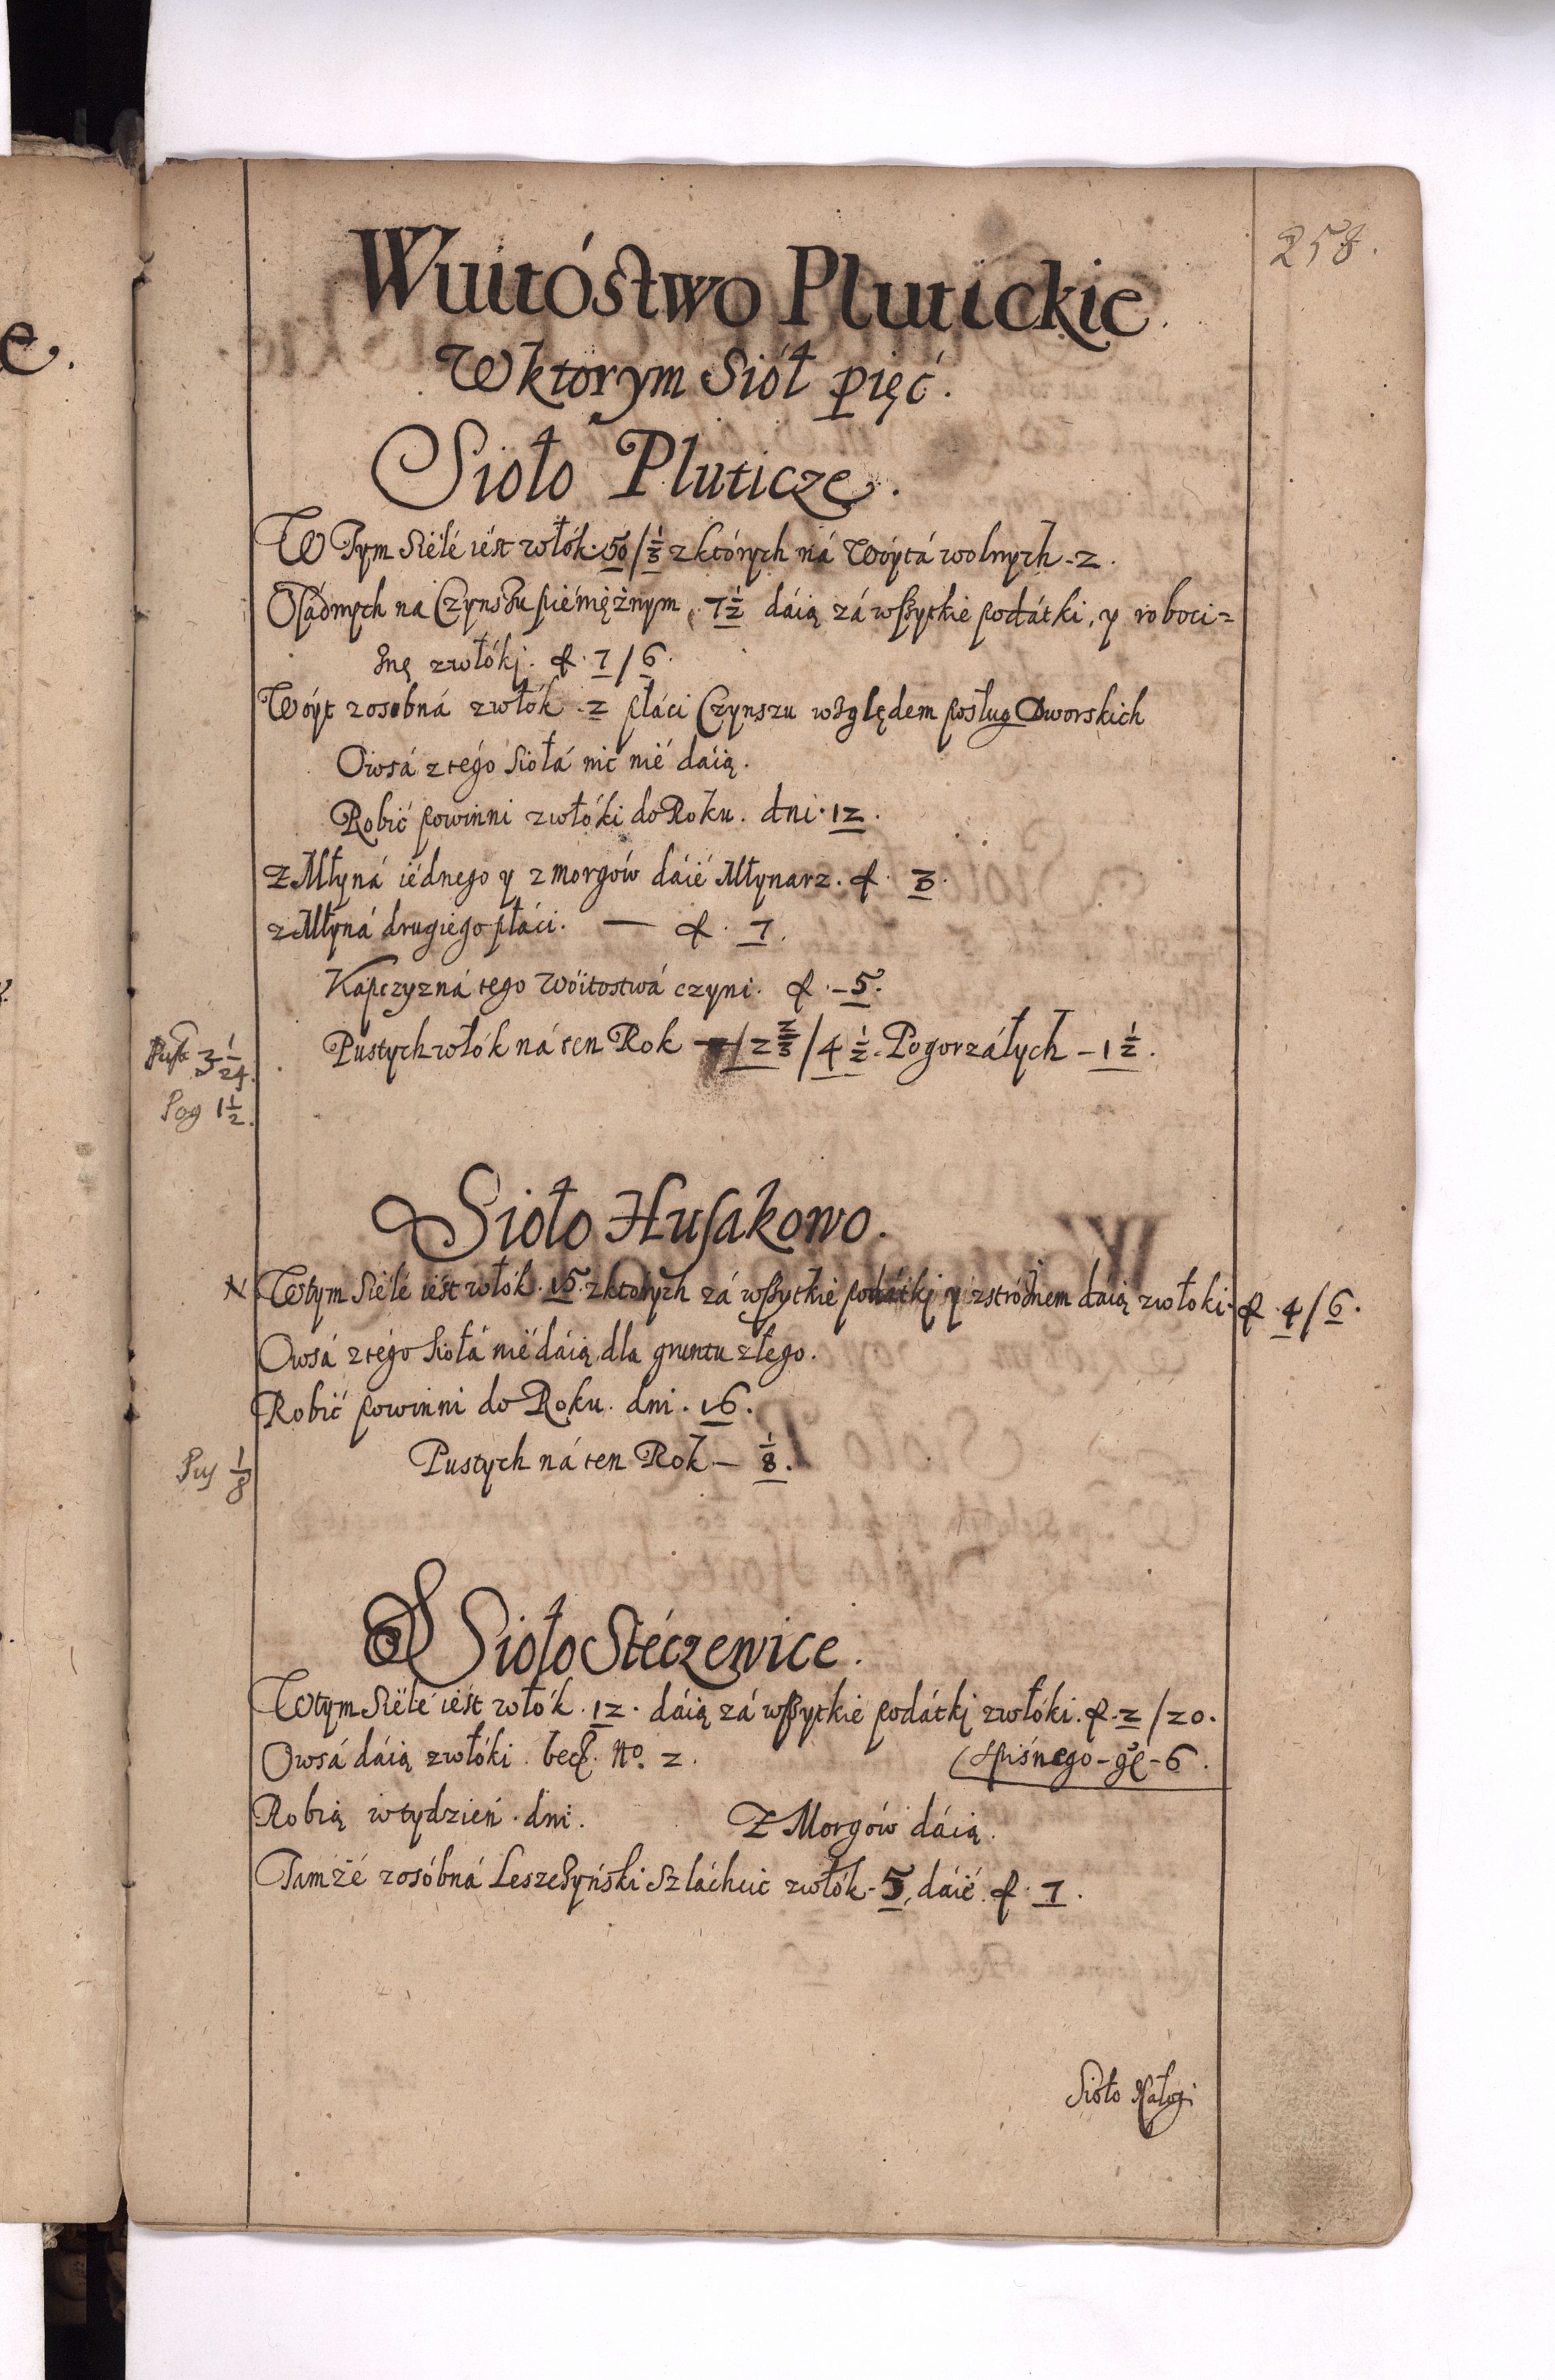 258.
Wuitóstwo Plutickie
W ktorym Siół pięć.
Sioło Pluticze.
W Tym Siélé iést włók. 50/⅓ z których ná Wóytá wolnych - 2.
Osadnych na Czynszu piéniężnym, 7½ dáią zá wszytkie podátki, y roboci=
znę z włóki. f. 7/6.
Wóyt z osobná z włók. 2 płáci Czynszu względem posług Dworskich
Owsá z tégo Siołá nic nié daią.
Robić powinni z włóki do Roku. dni. 12.
Z Młyná iédnego y z morgów dáié Młynarz. f. 3.
z Młyná drugiego płáci. — f. 7.
Kapczyzná tego Wóitostwá czyni. f. - 5.
Pustych włók ná ten Rok /2⅔/4½. Pogorzáłych - 1½.
Pust 3 1/24.
Pog 1½.
Sioło Husakowo.
W tym Siélé iést włók. 15. z ktorych zá wszytkie podátki y z stróżnem dáią z włoki. f. 4/6.
Owsá z tégo Siołá nié dáią dla gruntu złego.
Robić powinni do Roku. dni. 16.
Pustych ná ten Rok — ⅛.
Pus ⅛
Sioło Stéczewice.
W tym Siélé iést włók. 12. dáią zá wszytkie podátki z włóki. f. 2/20.
Owsá dáią z włóki. becz. No. 2. Spiśnego - gr - 6.
Robią w tydzień. dni. Z Morgów dáią.
Tamżé z osóbná Leszczyński Szláchcic z włók - 5, dáié. f. 7.
Sioło Nałogi